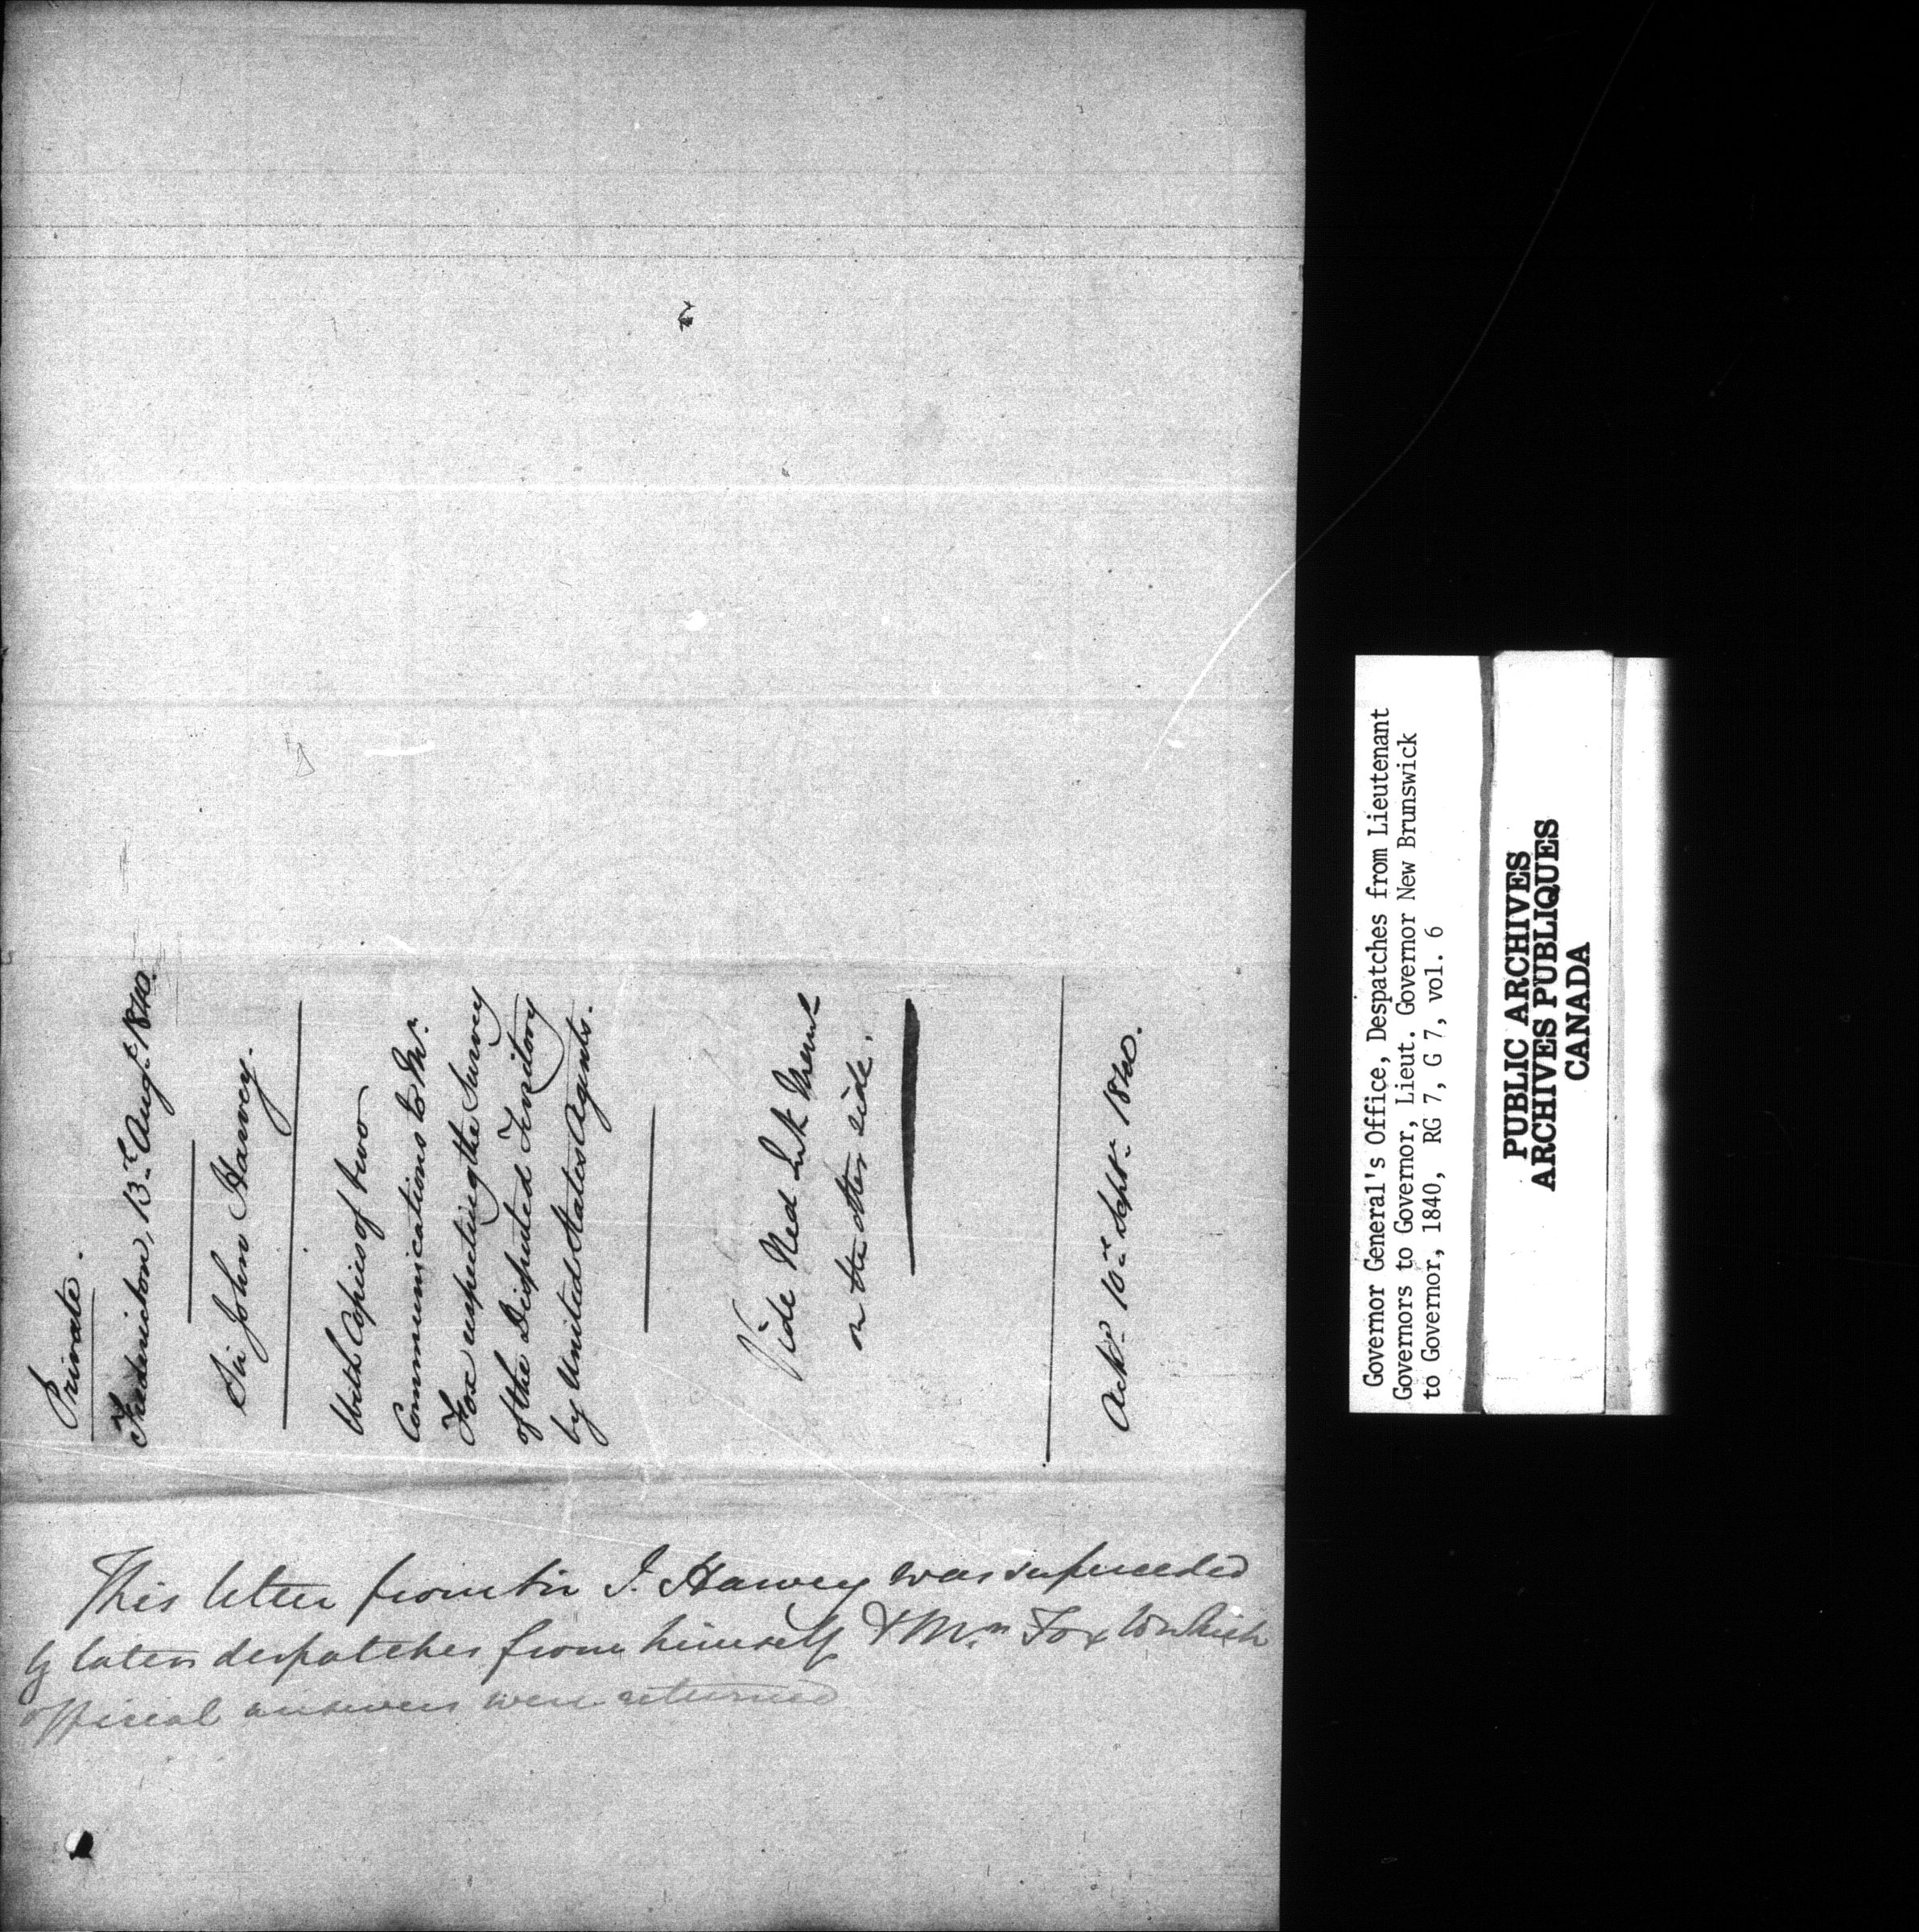 Private.
Fredericton, 13th Augt. 1840.
Sir John Harvey.
With Copies of two
Communications to Mr.
Fox respecting the Survey
of the Disputed Territory
by United States Agents.
Vide Red Ink Memk
on the other side.
Ackd. 10th Septr. 1840.
This letter from Sir J. Harvey was superceded
by later despatches from himself & Mr. Fox to which
official answers were returned
Governor General's Office, Despatches from Lieutenant
Governors to Governor, Lieut. Governor New Brunswick
to Governor, 1840, RG 7, G 7, vol. 6
PUBLIC ARCHIVES
ARCHIVES PUBLIQUES
CANADA